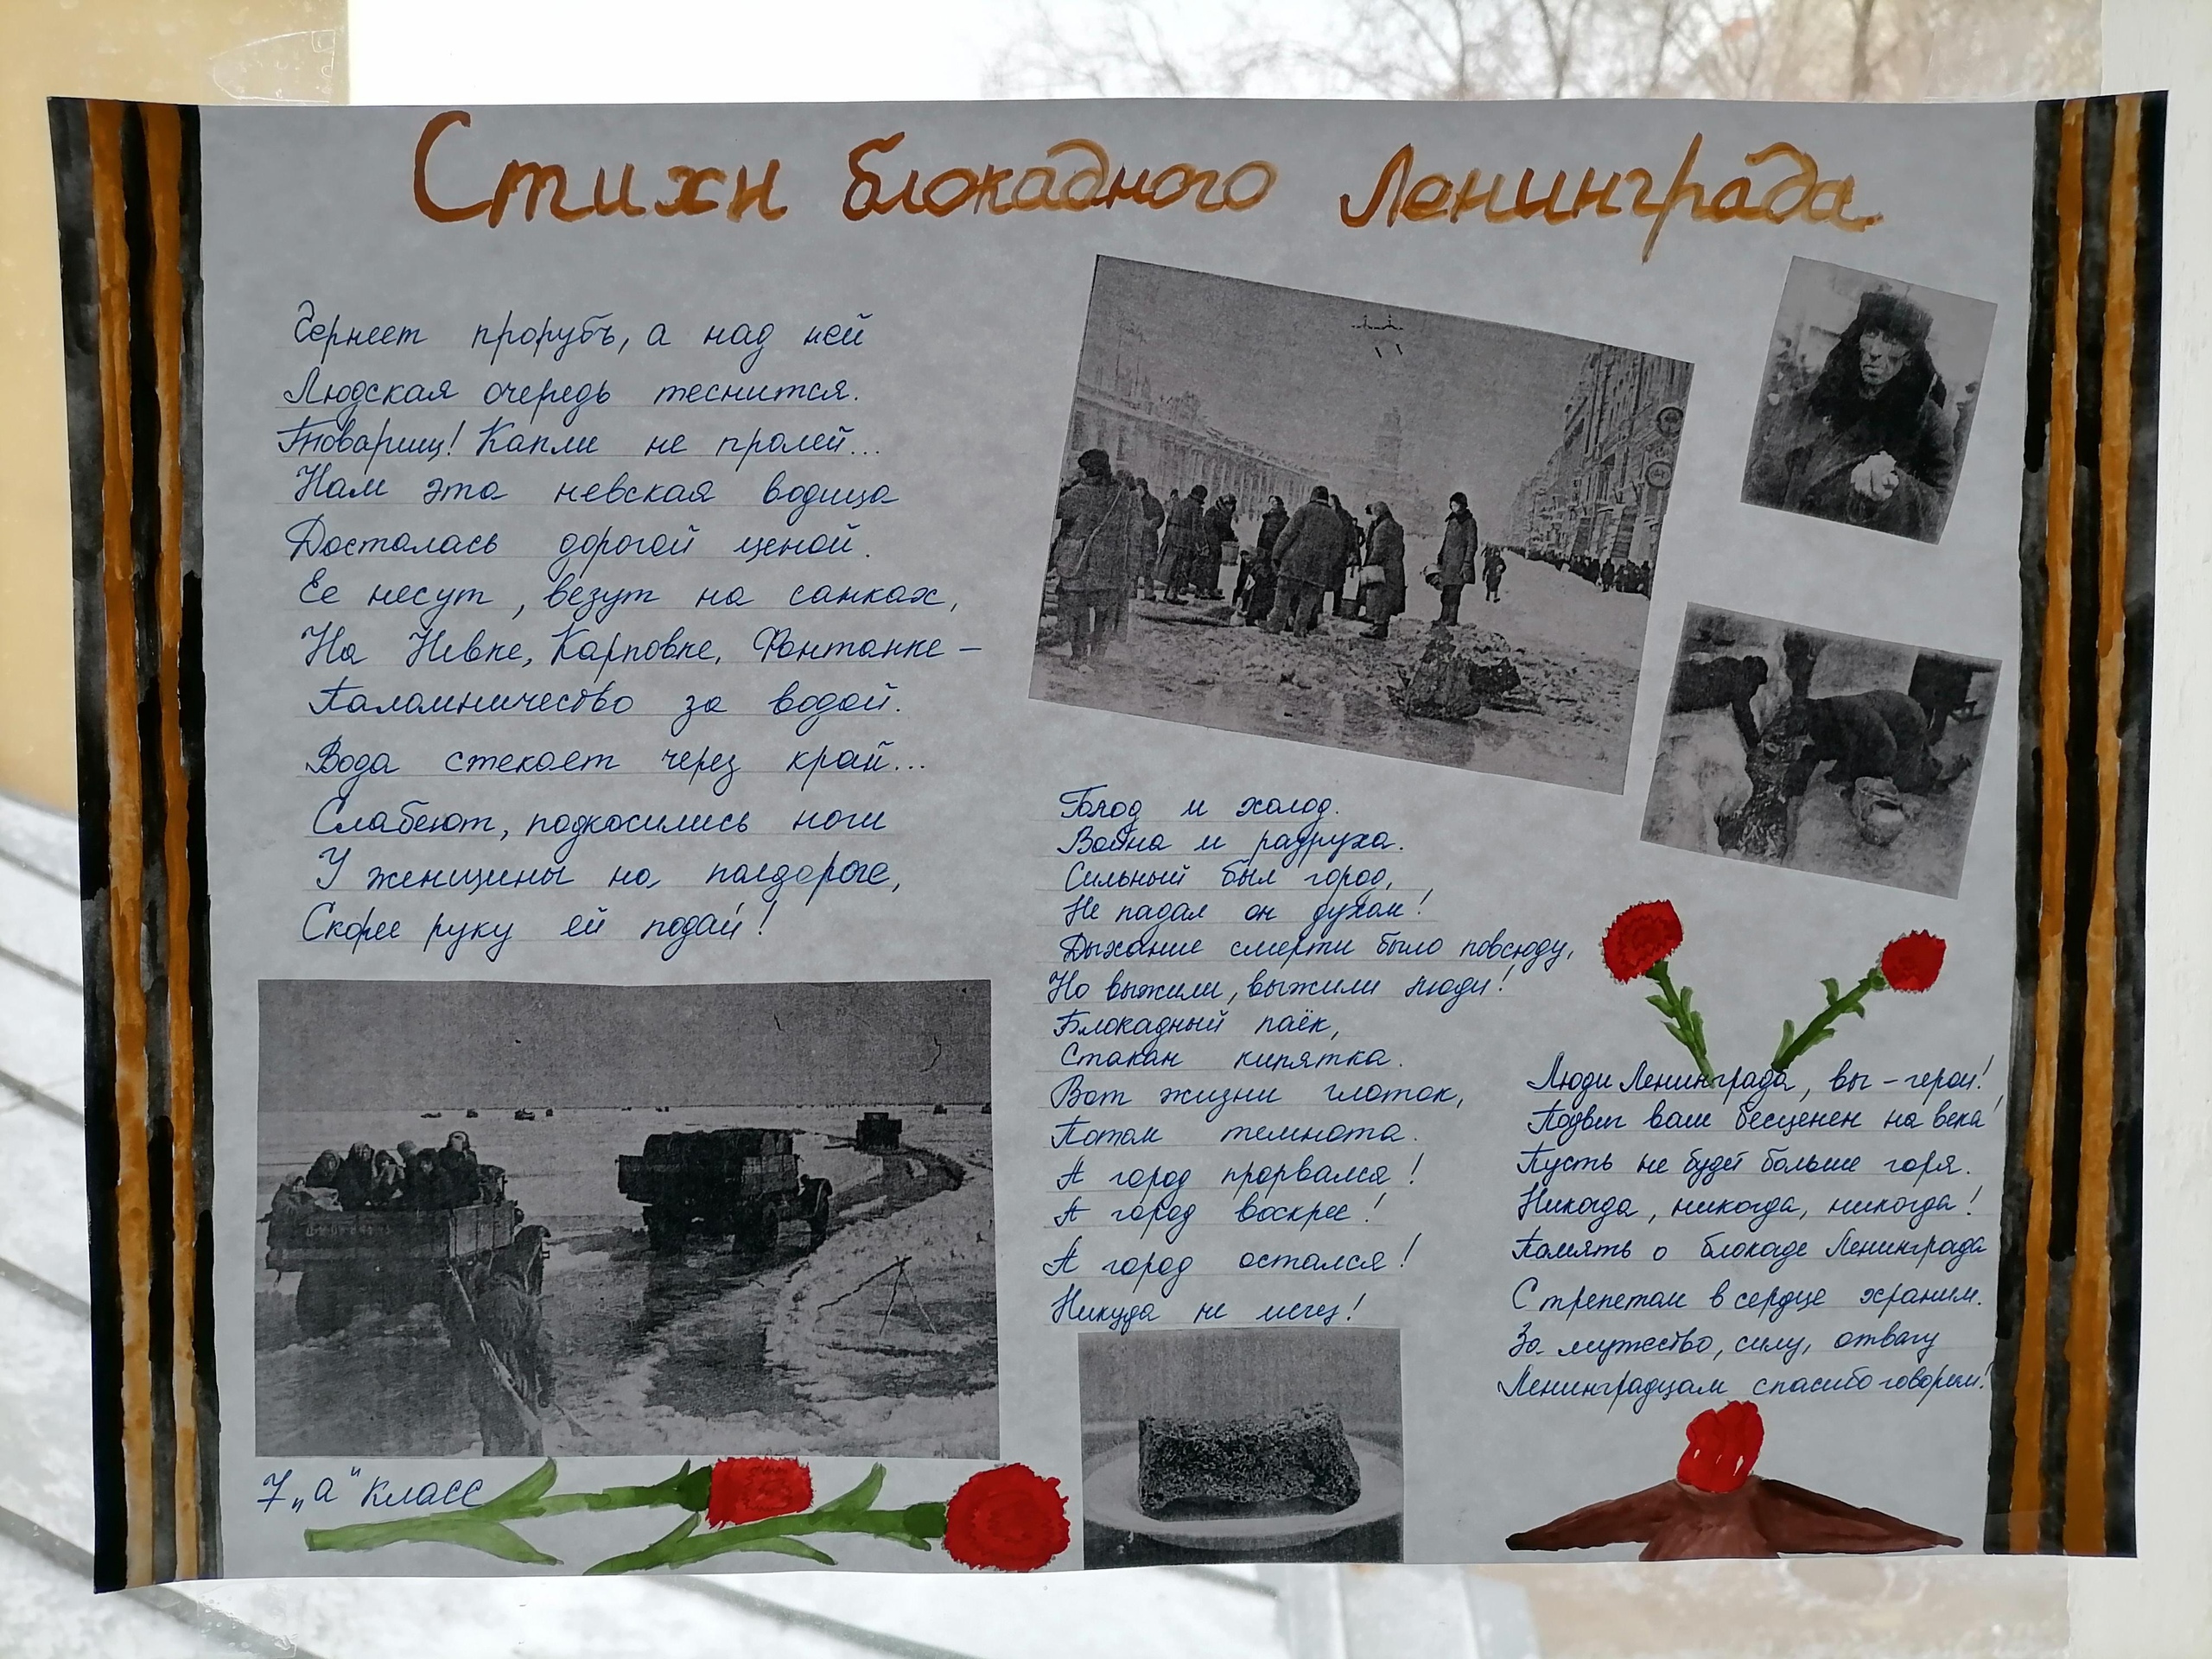 Стихи блокадного Ленинграда
Чернеет прорубь, а над ней
Людская очередь теснится.
Товарищ! Капли не пролей...
Нам эта невская водица
Досталась дорогой ценой.
Ее несут, везут на санках,
На Невке, Карповке, Фонтанке –
Паломничество за водой.
Вода стекает через край...
Слабеют, подкосились ноги
У женщины на полдороге,
Скорее руку ей подай!
7 „а" класс
Голод и холод.
Война и разруха.
Сильный был город,
Не падал он духом!
Дыхание смерти было повсюду,
Но выжили, выжили люди!
Блокадный паёк,
Стакан кипятка.
Вот жизни глоток,
Потом темнота.
А город прорвался!
А город воскрес!
А город остался!
Никуда не исчез!
Люди Ленинграда, вы – герои!
Подвиг ваш бесценен на века!
Пусть не будет больше горя.
Никогда, никогда, никогда!
Память о блокаде Ленинграда
С трепетом в сердце храним.
За мужество, силу, отвагу
Ленинградцам спасибо говорим!